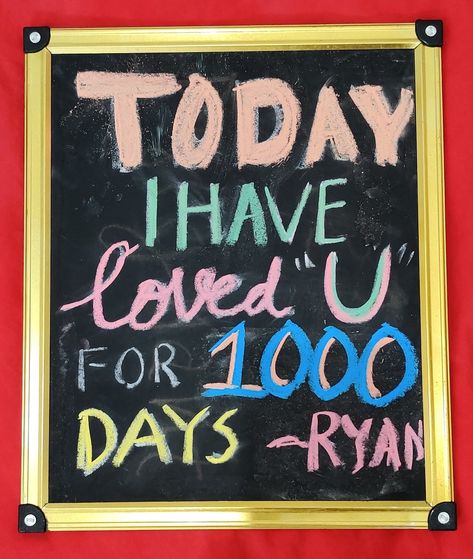 TODAY
I HAVE
loved "U"
FOR 1000
DAYS ~RYAN